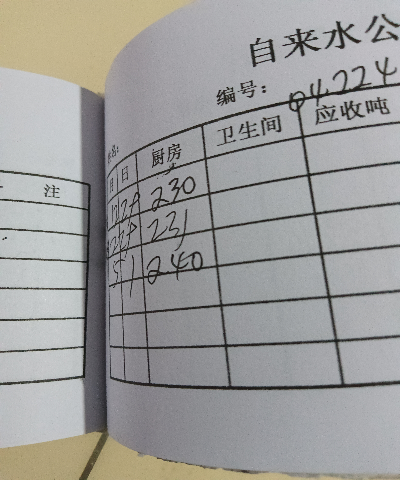 自来水公
编号: 04224
姓名:
注
月 日 厨房 卫生间 应收吨
230
231
5 1 240